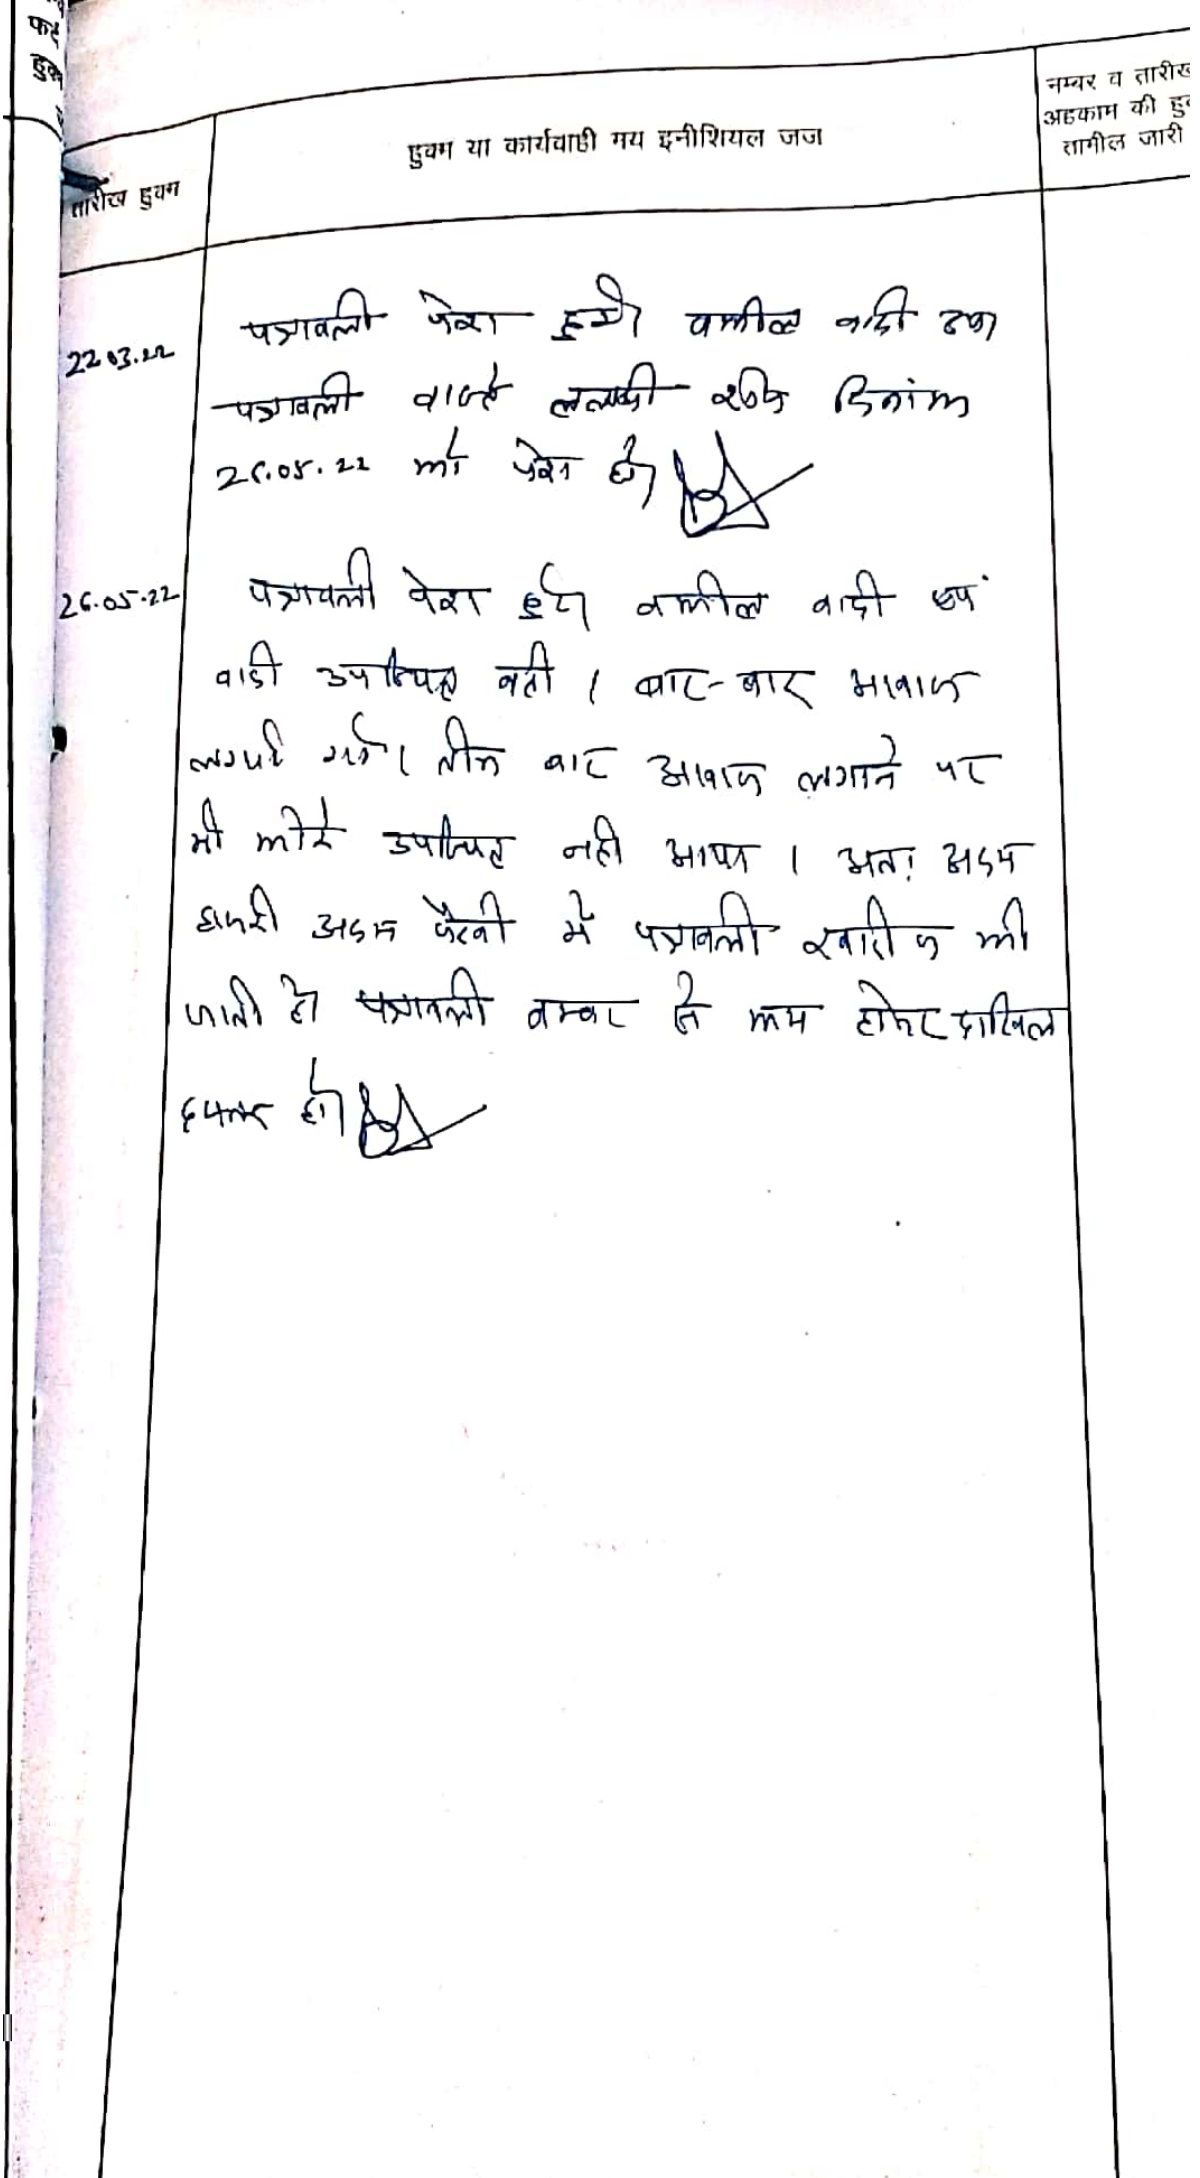 फर्द
हुक्म
तारीख हुक्म
हुक्म या कार्यवाही मय इनीशियल जज
नम्बर व तारीख
अहकाम की हु
तामील जारी
22.03.22
पत्रावली पेश हुयी वकील वादी उप०
पत्रावली वास्ते तलबी दिनांक
26.05.22 को पेश हो।
26.05.22
पत्रावली पेश हुई। वकील वादी एवं
वादी उपस्थित नही । बार-बार आवाज
लगाई गई। तीन बार आवाज लगाने पर
भी कोई उपस्थित नही आया । अतः अदम
हाजरी अदम पैरवी में पत्रावली खारीज की
जाती है। पत्रावली नम्बर से कम होकर दाखिल
दफ्तर हो।